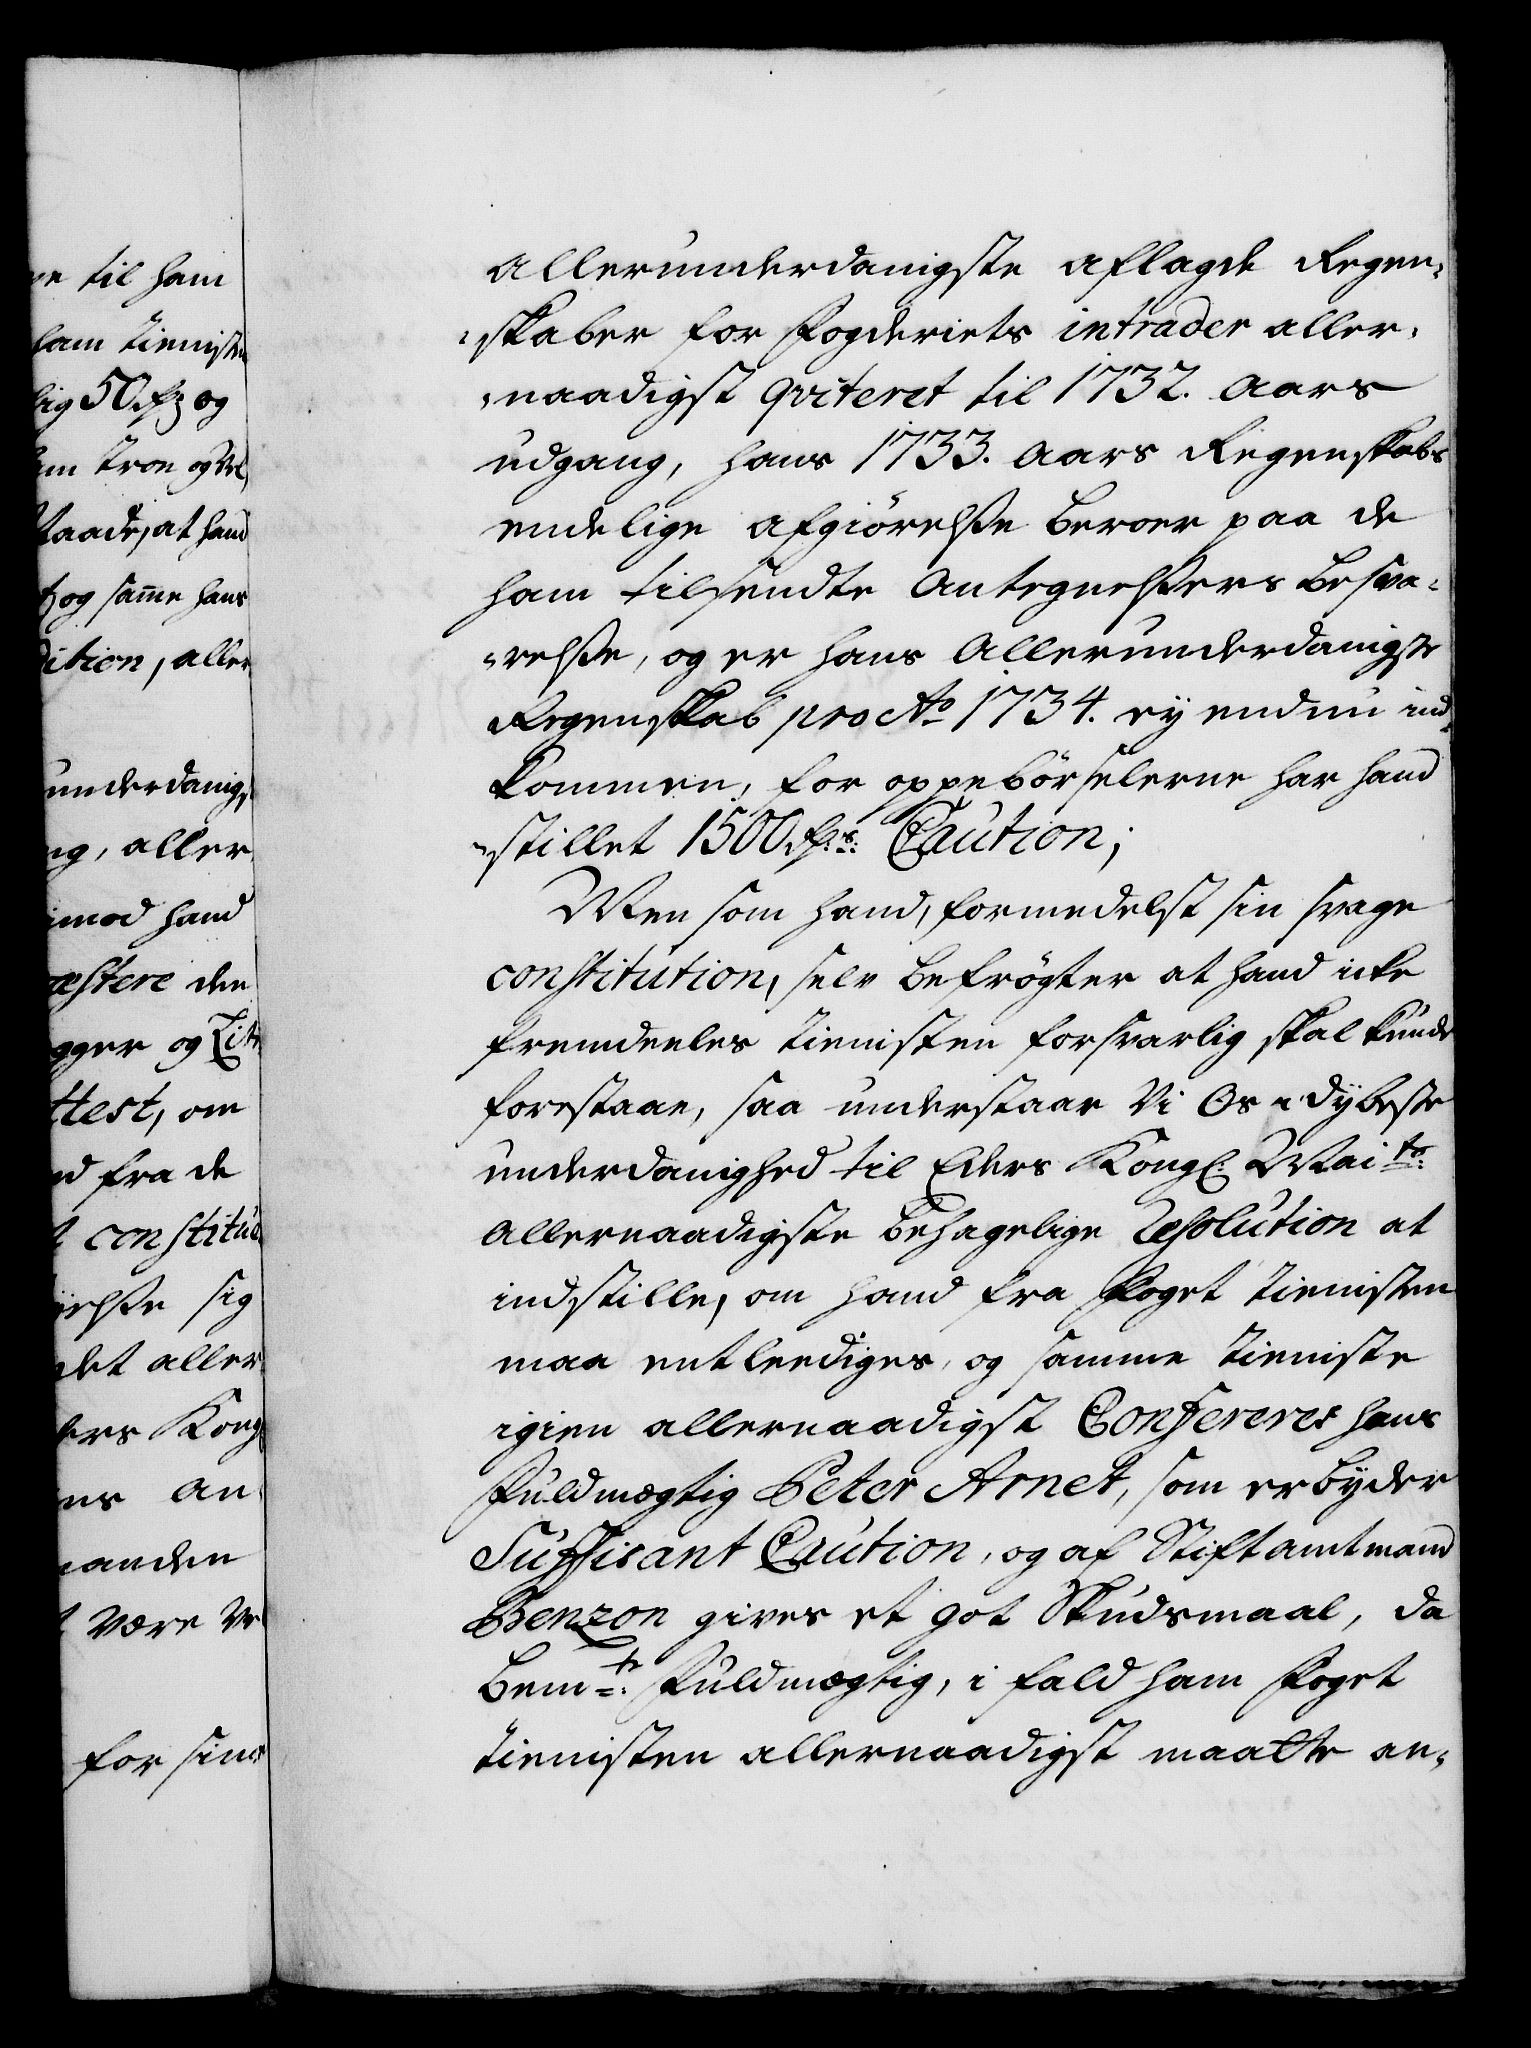 re til ham
ham tienisten
lig 50 rd og
ham troe og vel
Maade, at hand
og samme hans
dition, aller
underdanigst
ng, aller
imod hand
æstere den
gger og Lit
ttest, om
d fra de
constitue
else sig
det aller
ers Kongl
ns an
manden
t være ve
for sine
allerunderdanigste aflagde Regen-
-skaber for Fogderiets intrader aller-
-naadigst qviteret til 1732. Aars
udgang, hans 1733. Aars Regenskabs
endelige afgiörelse beroer paa de
ham tilsendte Antegnelsers besva-
-relse, og er hans Allerunderdanigste
Regenskab pro Ao 1734. ey endnu ind-
kommen, for oppebörselerne har hand
-stillet 1500 rdrs: Caution;
Men som hand, formedelst sin svage
constitution, selv befrögter at hand icke
fremdeeles tienisten forsvarlig skal kunde
forestaae, saa understaar Vi Os i dybeste
underdanighed til Eders Kongl: Maits:
allernaadigste behagelige Resolution at
indstille, om hand fra Foget tienisten
maa entleediges, og samme tieniste
igien allernaadigst Confereres hans
Fuldmægtig Peter Arnet, som erbyder
Suffisant Caution, og af Stiftamtmand
Benzon gives et got Skudsmaal, da
bemte: Fuldmægtig, i fald ham Foget
tienisten allernaadigst maatte an-